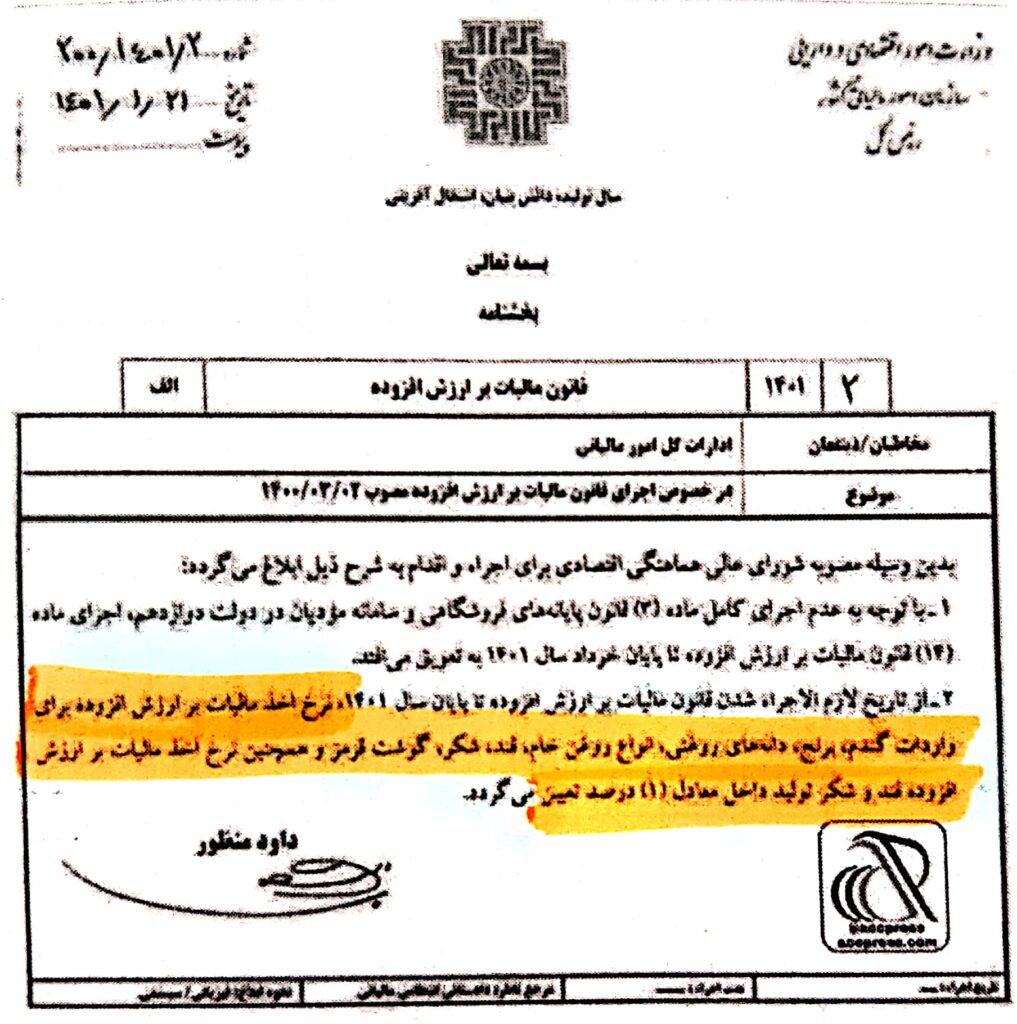 وزارت امور اقتصادی و دارایی
سازمان امور مالیاتی کشور
رئیس کل
شماره ۲۰۰/۱۴۰۱/۲
تاریخ ۱۴۰۱/۰۱/۲۱
پیوست
سال تولید، دانش بنیان، اشتغال آفرینی
بسمه تعالی
بخشنامه
۲ ۱۴۰۱ قانون مالیات بر ارزش افزوده الف
مخاطبان/ذینفعان ادارات کل امور مالیاتی
موضوع در خصوص اجرای قانون مالیات بر ارزش افزوده مصوب ۱۴۰۰/۰۳/۰۲
بدین وسیله مصوبه شورای عالی هماهنگی اقتصادی برای اجراء و اقدام به شرح ذیل ابلاغ می‌گردد:
۱ـ با توجه به عدم اجرای کامل ماده (۳) قانون پایانه‌های فروشگاهی و سامانه مؤدیان در دولت دوازدهم، اجرای ماده
(۱۴) قانون مالیات بر ارزش افزوده تا پایان خرداد سال ۱۴۰۱ به تعویق می‌افتد.
۲ـ از تاریخ لازم الاجراء شدن قانون مالیات بر ارزش افزوده تا پایان سال ۱۴۰۱، نرخ اخذ مالیات بر ارزش افزوده برای
واردات گندم، برنج، دانه‌های روغنی، انواع روغن خام، قند، شکر، گوشت قرمز و همچنین نرخ اخذ مالیات بر ارزش
افزوده قند و شکر تولید داخل معادل (۱) درصد تعیین می‌گردد.
داود منظور
@accpress
accpress.com
تاریخ اجراء: مدت اجراء: مرجع ناظر: دادستانی انتظامی مالیاتی نحوه ابلاغ: فیزیکی / سیستمی